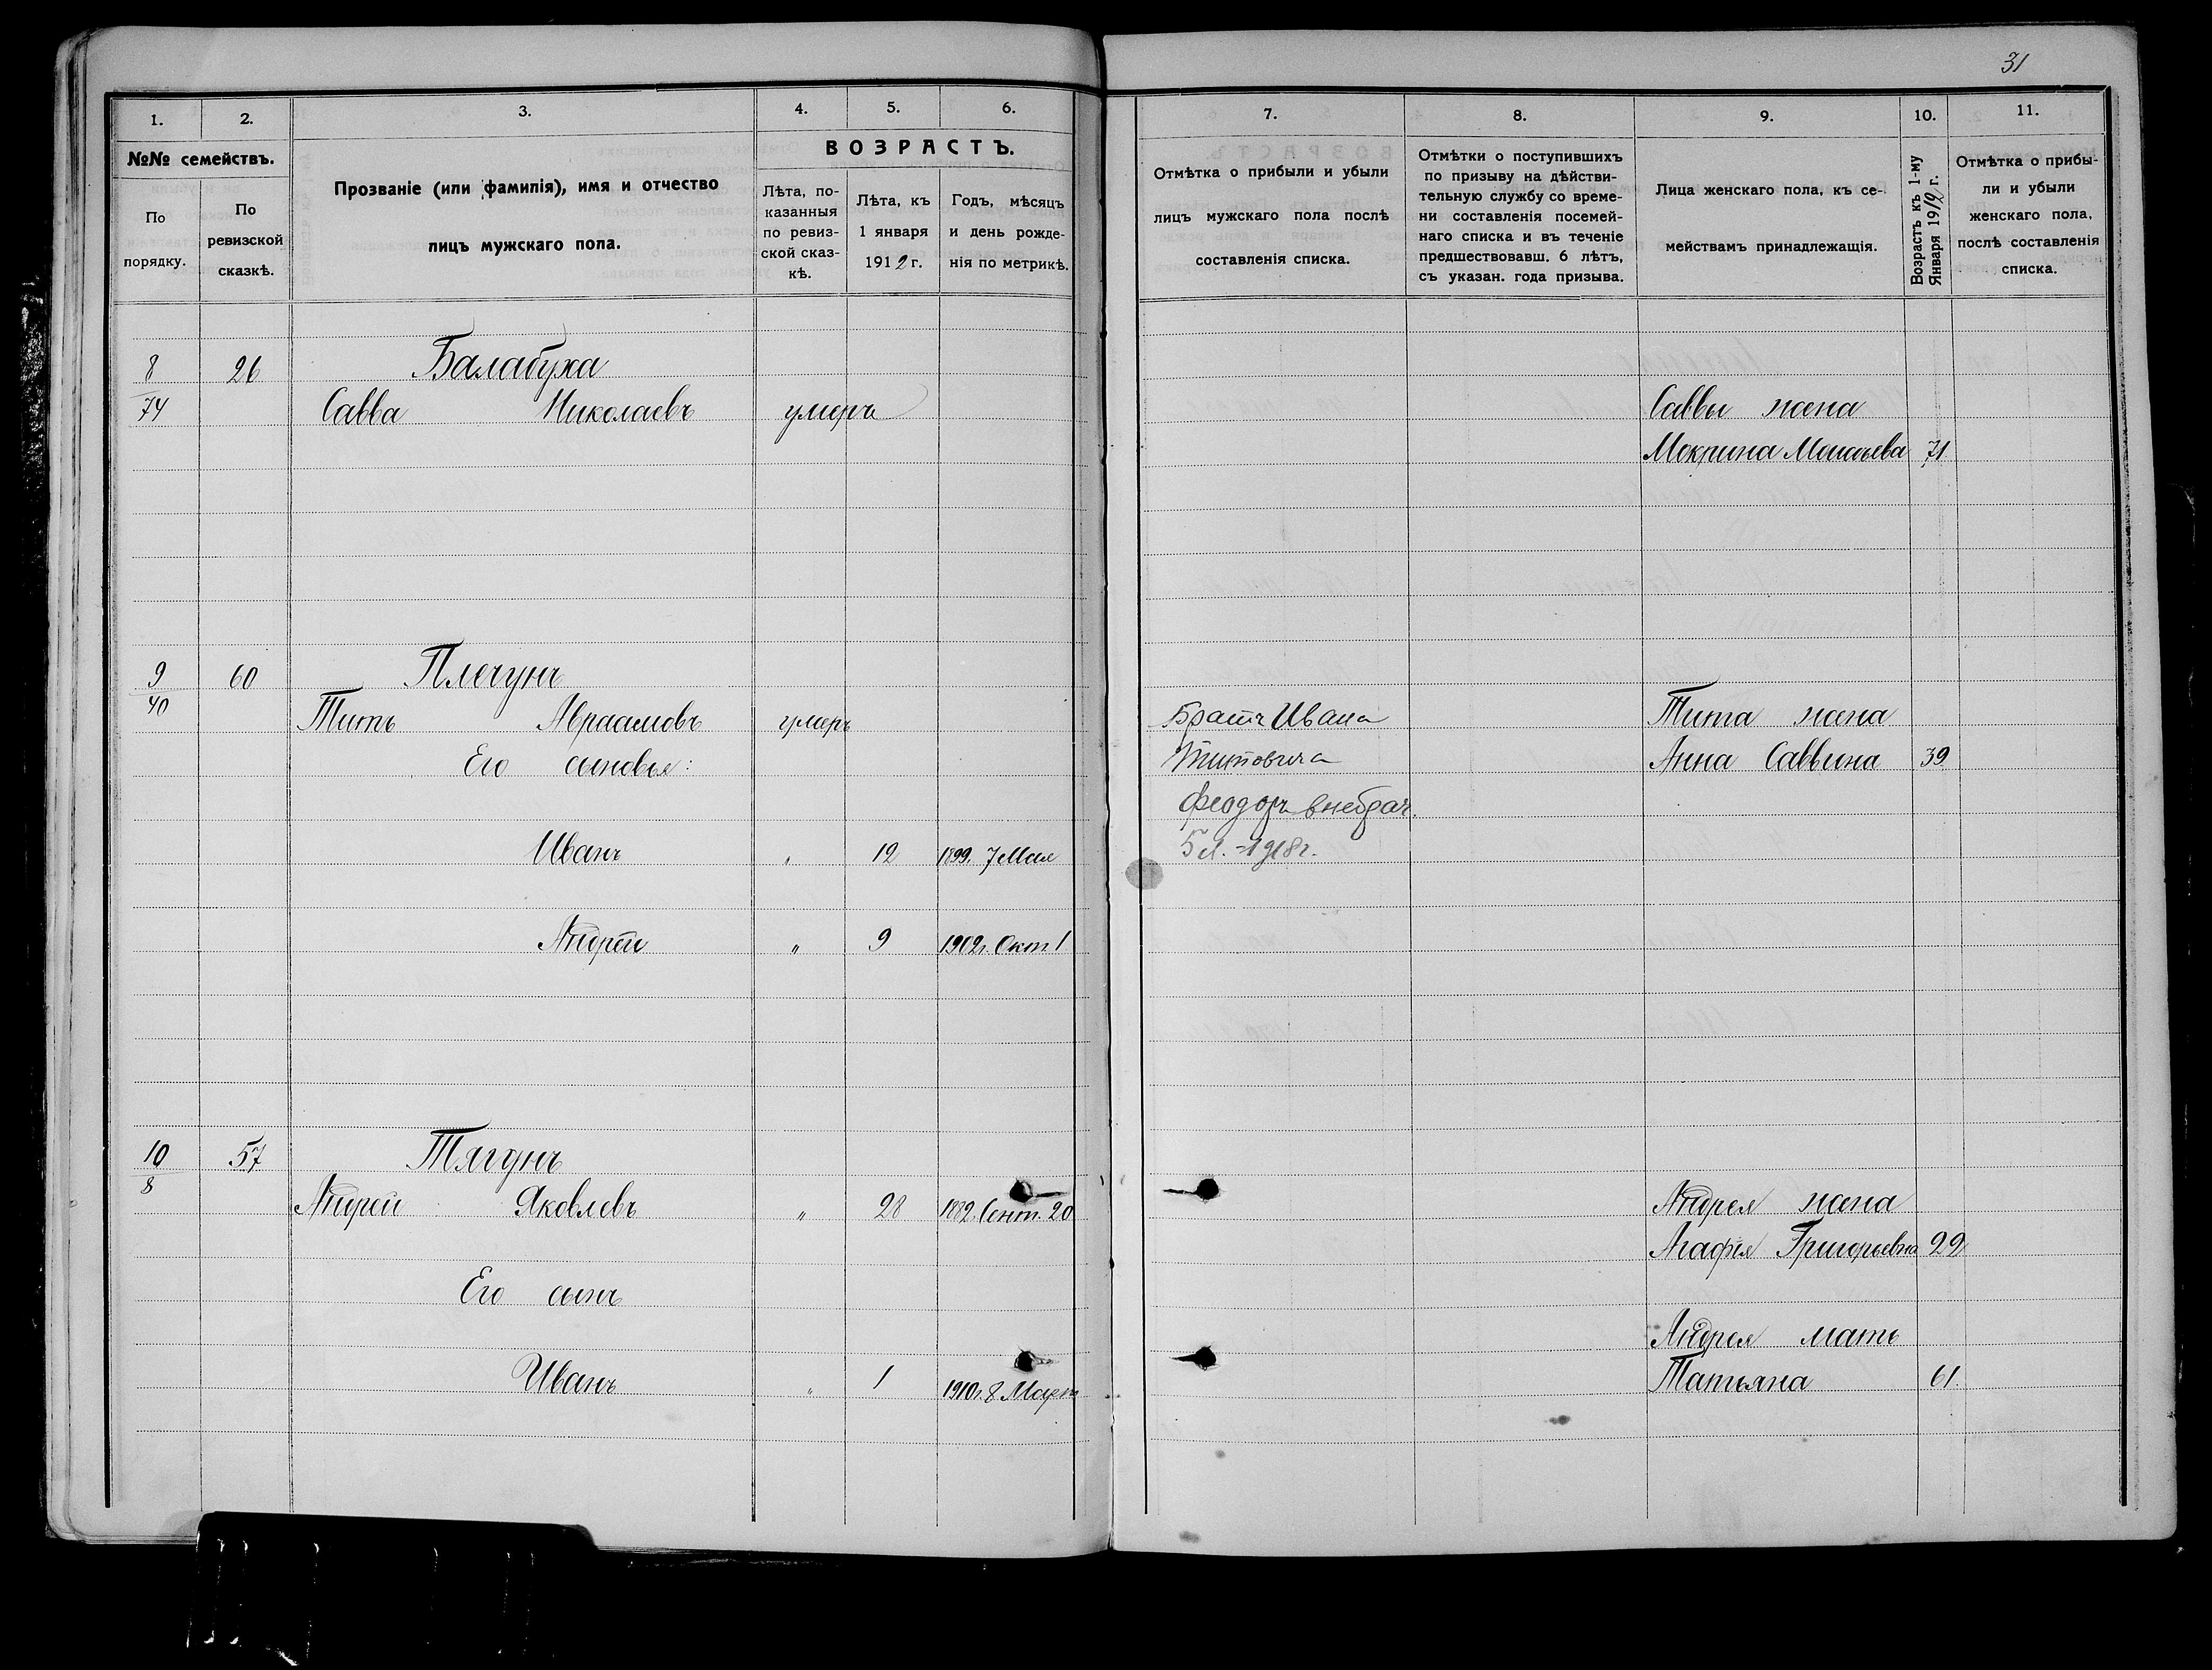 31
1. 2. 3. 4. 5. 6.
№№ семействъ.
По порядку.
По ревизской сказкѣ.
Прозваніе (или фамилія), имя и отчество
лицъ мужскаго пола.
ВОЗРАСТЪ.
Лѣта, по-
казанныя
по ревиз-
ской сказ-
кѣ.
Лѣта, къ
1 января
1912 г.
Годъ, мѣсяцъ
и день рожде-
нія по метрикѣ.
7. 8. 9. 10. 11.
Отмѣтка о прибыли и убыли
лицъ мужскаго пола послѣ
составленія списка.
Отмѣтки о поступившихъ
по призыву на дѣйстви-
тельную службу со време-
ни составленія посемей-
наго списка и въ теченіе
предшествовавш. 6 лѣтъ,
съ указан. года призыва.
Лица женскаго пола, къ се-
мействамъ принадлежащія.
Возрастъ къ 1-му
Января 1912 г.
Отмѣтка о прибы-
ли и убыли
женскаго пола,
послѣ составленія
списка.
8 26 Балабуха
74 Савва Николаевъ умеръ Саввы жена
Мокрина 71
9 60 Плегунъ
40 Титъ Авраамовъ умеръ Братъ Ивана Тита жена
Его сыновья: Титовича Анна Саввина 39
Феодоръ внебрач.
Иванъ " 12 1899. 7 Мая 5 л. - 1918 г.
Андрей " 9 1902 г. Окт. 1
10 57 Тягунъ
8 Андрей Яковлевъ " 28 1882. Сент. 20 Андрея жена
Агафія Григорьевна 22
Его сынъ
Андрея мать
Иванъ " 1 1910 г. 8 Март Татьяна 61.